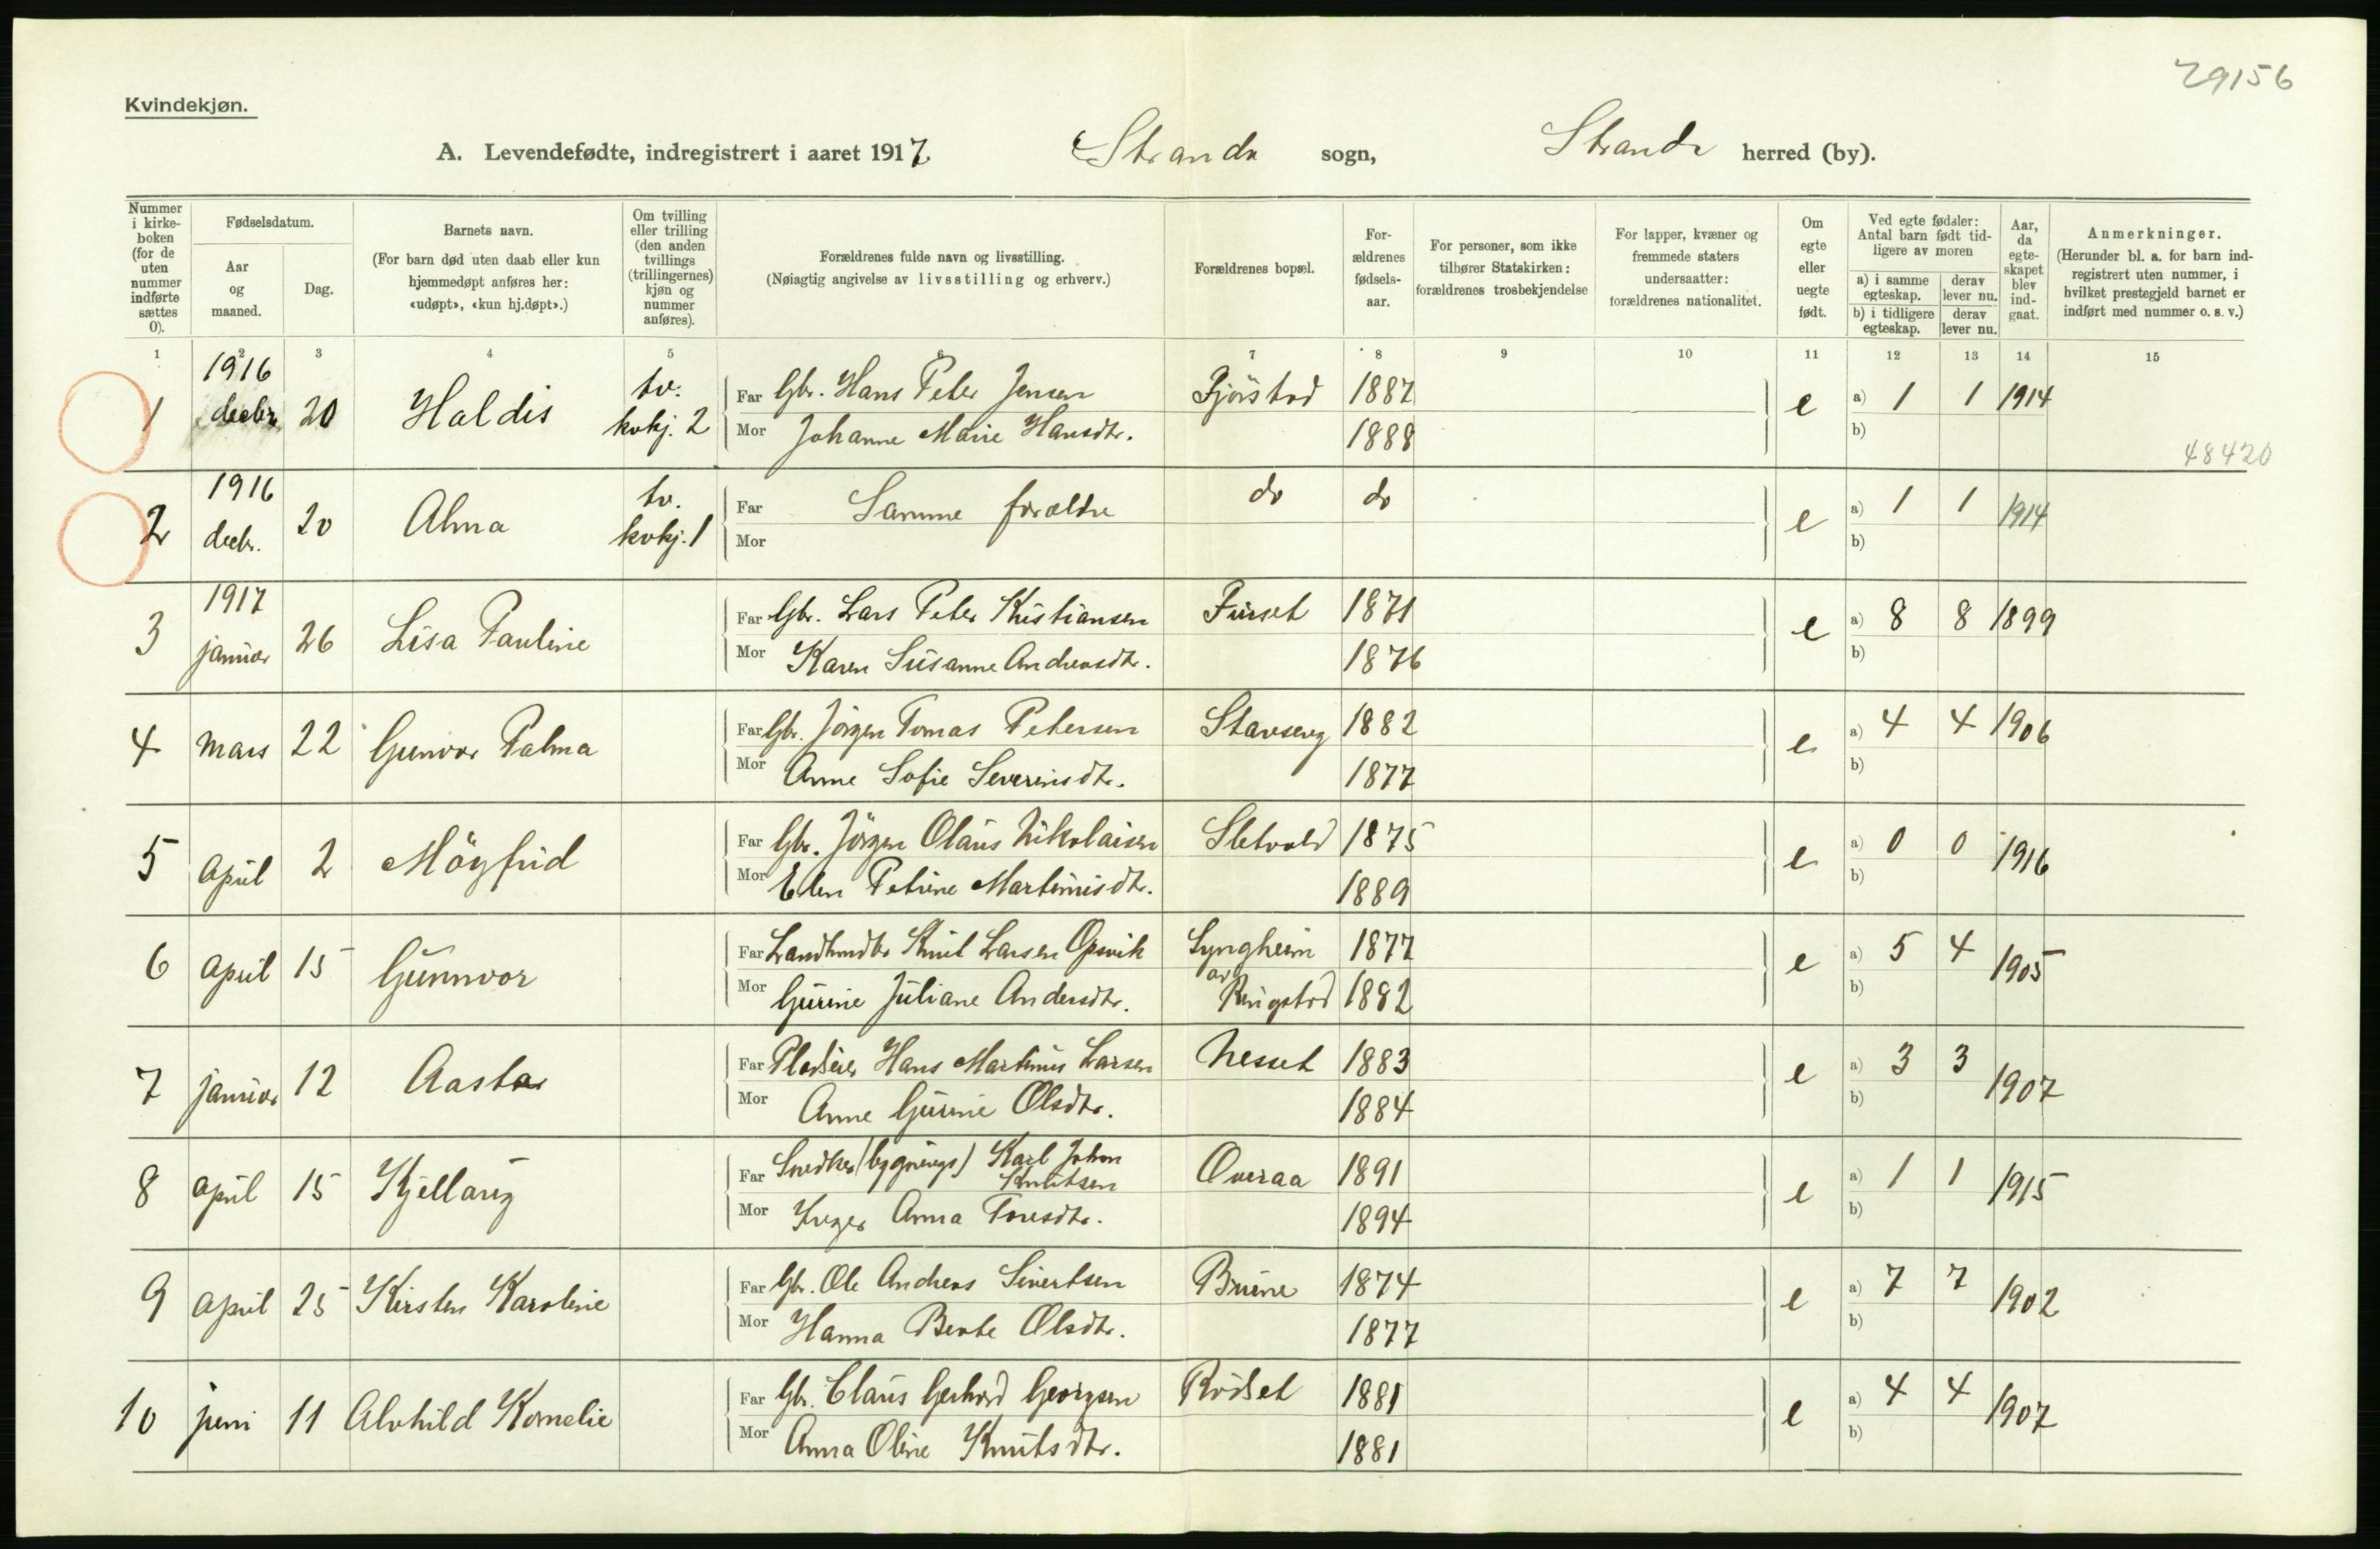 29156
Kvindekjøn.
A. Levendefødte, indregistrert i aaret 1917. Stranda sogn, Stranda herred (by).
Nummer i kirkeboken (for de uten nummer indførte sættes 0).
Fødselsdatum.
Aar og maaned.
Dag.
Barnets navn.
(For barn død uten daab eller kun hjemmedøpt anføres her: «udøpt», «kun hj.døpt».)
Om tvilling eller trilling (den anden tvillings (trillingernes) kjøn og nummer anføres).
Forældrenes fulde navn og livsstilling.
(Nøiagtig angivelse av livsstilling og erhverv.)
Forældrenes bopæl.
For-ældrenes fødsels-aar.
For personer, som ikke tilhører Statskirken: forældrenes trosbekjendelse
For lapper, kvæner og fremmede staters undersaatter: forældrenes nationalitet.
Om egte eller uegte født.
Ved egte fødsler: Antal barn født tid-ligere av moren
a) i samme egteskap. derav lever nu.
b) i tidligere egteskap. derav lever nu.
Aar, da egte-skapet blev ind-gaat.
Anmerkninger.
(Herunder bl. a. for barn ind-registrert uten nummer, i hvilket prestegjeld barnet er indført med nummer o. s. v.)
1 2 3 4 5 6 7 8 9 10 11 12 13 14 15
1 1916 decbr. 20 Haldis tv. kvkj. 2 Far Gbr. Hans Peter Jensen Fjørstad 1887 e a) 1 1 1914
Mor Johanne Marie Hansdtr. 1888 b)
48420
2 1916 decbr. 20 Alma tv. kvkj. 1 Far Samme forældre do do e a) 1 1 1914
Mor b)
3 1917 januar 26 Lisa Pauline Far Gbr. Lars Peter Kristiansen Furset 1871 e a) 8 8 1899
Mor Karen Susanne Andreasdtr. 1876 b)
4 mars 22 Gunvor Palma Far Gbr. Jörgen Tomas Petersen Stavseng 1882 e a) 4 4 1906
Mor Anne Sofie Severinsdtr. 1877 b)
5 april 2 Möyfrid Far Gbr. Jörgen Olaus Nikolaisen Sletvold 1875 e a) 0 0 1916
Mor Elen Petrine Martinusdtr. 1889 b)
6 april 15 Gunnvor Far Landhndlr Knut Larsen Opsvik Lyngheim 1877 e a) 5 4 1905
Mor Gurine Juliane Andersdtr. av Ringstad 1882 b)
7 januar 12 Aasta Far Pladseier Hans Martinus Larsen Nesset 1883 e a) 3 3 1907
Mor Anne Gurine Olsdtr. 1884 b)
8 april 15 Kjellaug Far Snedker (bygnings) Karl Johan Knutsen Overaa 1891 e a) 1 1 1915
Mor Inger Anna Toresdtr. 1894 b)
9 april 25 Kirsten Karoline Far Gbr. Ole Andreas Sivertsen Brune 1874 e a) 7 7 1902
Mor Hanna Berte Olsdtr. 1877 b)
10 juni 11 Alvhild Kornelie Far Gbr. Claus Gerhard Georgsen Rödset 1881 e a) 4 4 1907
Mor Anna Oline Knutsdtr. 1881 b)